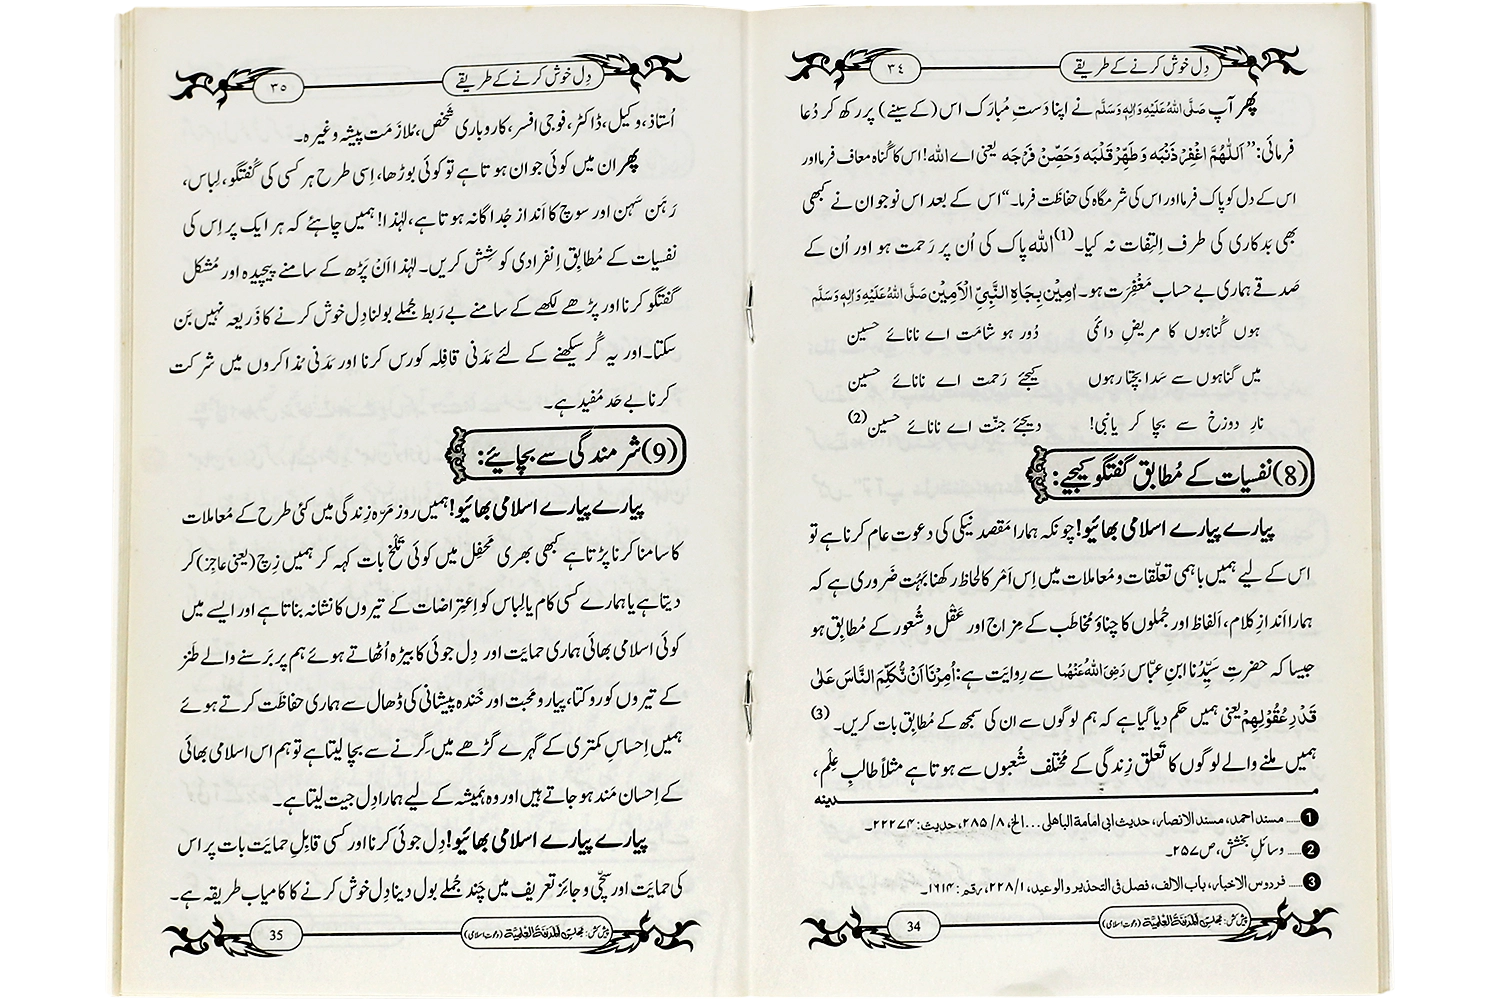 دِل خوش کرنے کے طریقے
٣٤
پھر آپ صَلَّی اللہُ عَلَیْہِ وَاٰلِہٖ وَسَلَّم نے اپنا دَستِ مُبارَک اس (کے سینے) پر رکھ کر دُعا
فرمائی: ’’اَللّٰھُمَّ اغْفِرْ ذَنْبَہٗ وَطَھِّرْ قَلْبَہٗ وَحَصِّنْ فَرْجَہٗ یعنی اے اللہ! اس کا گُناہ معاف فرما اور
اس کے دل کو پاک فرما اور اس کی شرمگاہ کی حفاظت فرما۔‘‘ اس کے بعد اس نوجوان نے کبھی
بھی بَدکاری کی طرف اِلتِفات نہ کیا۔(1) اللہ پاک کی اُن پر رَحمت ہو اور اُن کے
صَدقے ہماری بے حساب مَغْفِرَت ہو۔ اٰمِیْن بِجَاہِ النَّبِیِّ الْاَمِیْن صَلَّی اللہُ عَلَیْہِ وَاٰلِہٖ وَسَلَّم
ہوں گُناہوں کا مریضِ دائمی دُور ہو شامَت اے نانائے حسین
میں گناہوں سے سَدا بچتا رہوں کیجئے رَحمت اے نانائے حسین
نارِ دوزخ سے بچا کر یانبی! دیجئے جنّت اے نانائے حسین(2)
(8) نفسیات کے مُطابق گفتگو کیجیے:
پیارے پیارے اسلامی بھائیو! چونکہ ہمارا مقصد نیکی کی دعوت عام کرنا ہے تو
اس کے لیے ہمیں باہمی تعلّقات و مُعاملات میں اِس اَمْر کا لحاظ رکھنا بَہُت ضَروری ہے کہ
ہمارا اَندازِ کلام، اَلفاظ اور جُملوں کا چناؤ مُخاطَب کے مِزاج اور عَقْل و شُعور کے مُطابِق ہو
جیسا کہ حضرتِ سَیِّدُنا ابنِ عبّاس رَضِیَ اللہُ عَنْہُمَا سے رِوایَت ہے: اُمِرْنَا اَنْ نُّکَلِّمَ النَّاسَ عَلٰی
قَدْرِ عُقُوْلِہِمْ یعنی ہمیں حکم دیا گیا ہے کہ ہم لوگوں سے ان کی سمجھ کے مُطابِق بات کریں۔(3)
ہمیں ملنے والے لوگوں کا تَعلق زِندگی کے مُختلف شُعبوں سے ہوتا ہے مثلاً طالبِ عِلْم،
مدینہ
1 ..... مسند احمد، مسند الانصار، حدیث ابی امامة الباھلی... الخ، ۸/ ۲۸۵، حدیث: ۲۲۲۷۴۔
2 ..... وسائلِ بخشش، ص ۲۵۷۔
3 ..... فردوس الاخبار، باب الالف، فصل فی التحذیر والوعید، ۱/ ۲۲۸، رقم: ۱۶۱۴۔
پیش کش: مجلس المدینۃ العلمیۃ (دعوتِ اسلامی)
34
دِل خوش کرنے کے طریقے
٣٥
اُستاذ، وکیل، ڈاکٹر، فوجی افسر، کاروباری شَخص، مُلازَمَت پیشہ وغیرہ۔
پھر ان میں کوئی جوان ہوتا ہے تو کوئی بوڑھا، اِسی طرح ہر کسی کی گُفتگو، لِباس،
رَہَن سَہَن اور سوچ کا اَنداز جُداگانہ ہوتا ہے، لہٰذا! ہمیں چاہئے کہ ہر ایک پر اِس کی
نفسیات کے مُطابِق اِنفرادی کوشِش کریں۔ لہٰذا اَن پَڑھ کے سامنے پیچیدہ اور مُشکل
گُفتگو کرنا اور پڑھے لکھے کے سامنے بے رَبط جُملے بولنا دِل خوش کرنے کا ذَریعہ نہیں بَن
سکتا۔ اور یہ گُر سیکھنے کے لئے مَدَنی قافِلہ کورس کرنا اور مَدَنی مُذاکروں میں شرکت
کرنا بے حَد مُفید ہے۔
(9) شرمندگی سے بچائیے:
پیارے پیارے اسلامی بھائیو! ہمیں روز مَرّہ زِندگی میں کئی طرح کے مُعاملات
کا سامنا کرنا پڑتا ہے کبھی بھری مَحفِل میں کوئی تَلْخ بات کہہ کر ہمیں زِچ (یعنی عاجِز) کر
دیتا ہے یا ہمارے کسی کام یا لِباس کو اِعتِراضات کے تیروں کا نشانہ بناتا ہے اور ایسے میں
کوئی اسلامی بھائی ہماری حمایَت اور دِل جوئی کا بیڑہ اُٹھاتے ہوئے ہم پر بَرسنے والے طَنْز
کے تیروں کو روکتا، پیار و محبت اور خَندہ پیشانی کی ڈھال سے ہماری حفاظَت کرتے ہوئے
ہمیں اِحساسِ کمتری کے گہرے گڑھے میں گِرنے سے بچا لیتا ہے تو ہم اس اسلامی بھائی
کے اِحسان مَند ہو جاتے ہیں اور وہ ہَمیشہ کے لیے ہمارا دِل جیت لیتا ہے۔
پیارے پیارے اسلامی بھائیو! دِل جوئی کرنا اور کسی قابِلِ حمایَت بات پر اس
کی حمایَت اور سچّی و جائز تعریف میں چَند جُملے بول دینا دِل خوش کرنے کا کامیاب طریقہ ہے۔
پیش کش: مجلس المدینۃ العلمیۃ (دعوتِ اسلامی)
35